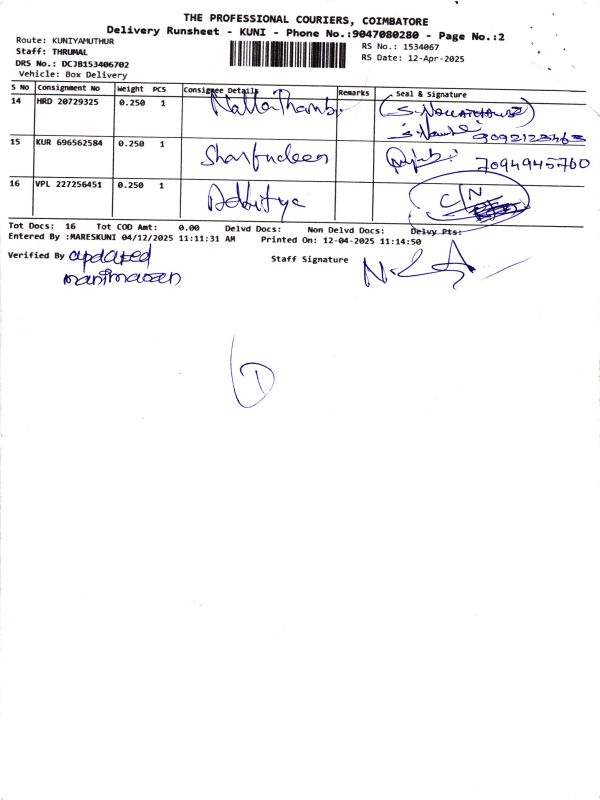 THE PROFESSIONAL COURIERS, COIMBATORE
Delivery Runsheet - KUNI - Phone No.:9047080280 - Page No.:2
Route: KUNIYAMUTHUR
Staff: THRUMAL
DRS No.: DCJB153406702
Vehicle: Box Delivery
RS No.: 1534067
RS Date: 12-Apr-2025
S No Consignment No Weight PCS Consignee Details Remarks Seal & Signature
14 HRD 20729325 0.250 1 NallaThambi
15 KUR 696562584 0.250 1 Sharfudeen 7094945760
16 VPL 227256451 0.250 1 Adhitya C/N
Tot Docs: 16 Tot COD Amt: 0.00 Delvd Docs: Non Delvd Docs: Delvy Pts:
Entered By :MARESKUNI 04/12/2025 11:11:31 AM Printed On: 12-04-2025 11:14:50
Verified By updated
manimaran
Staff Signature